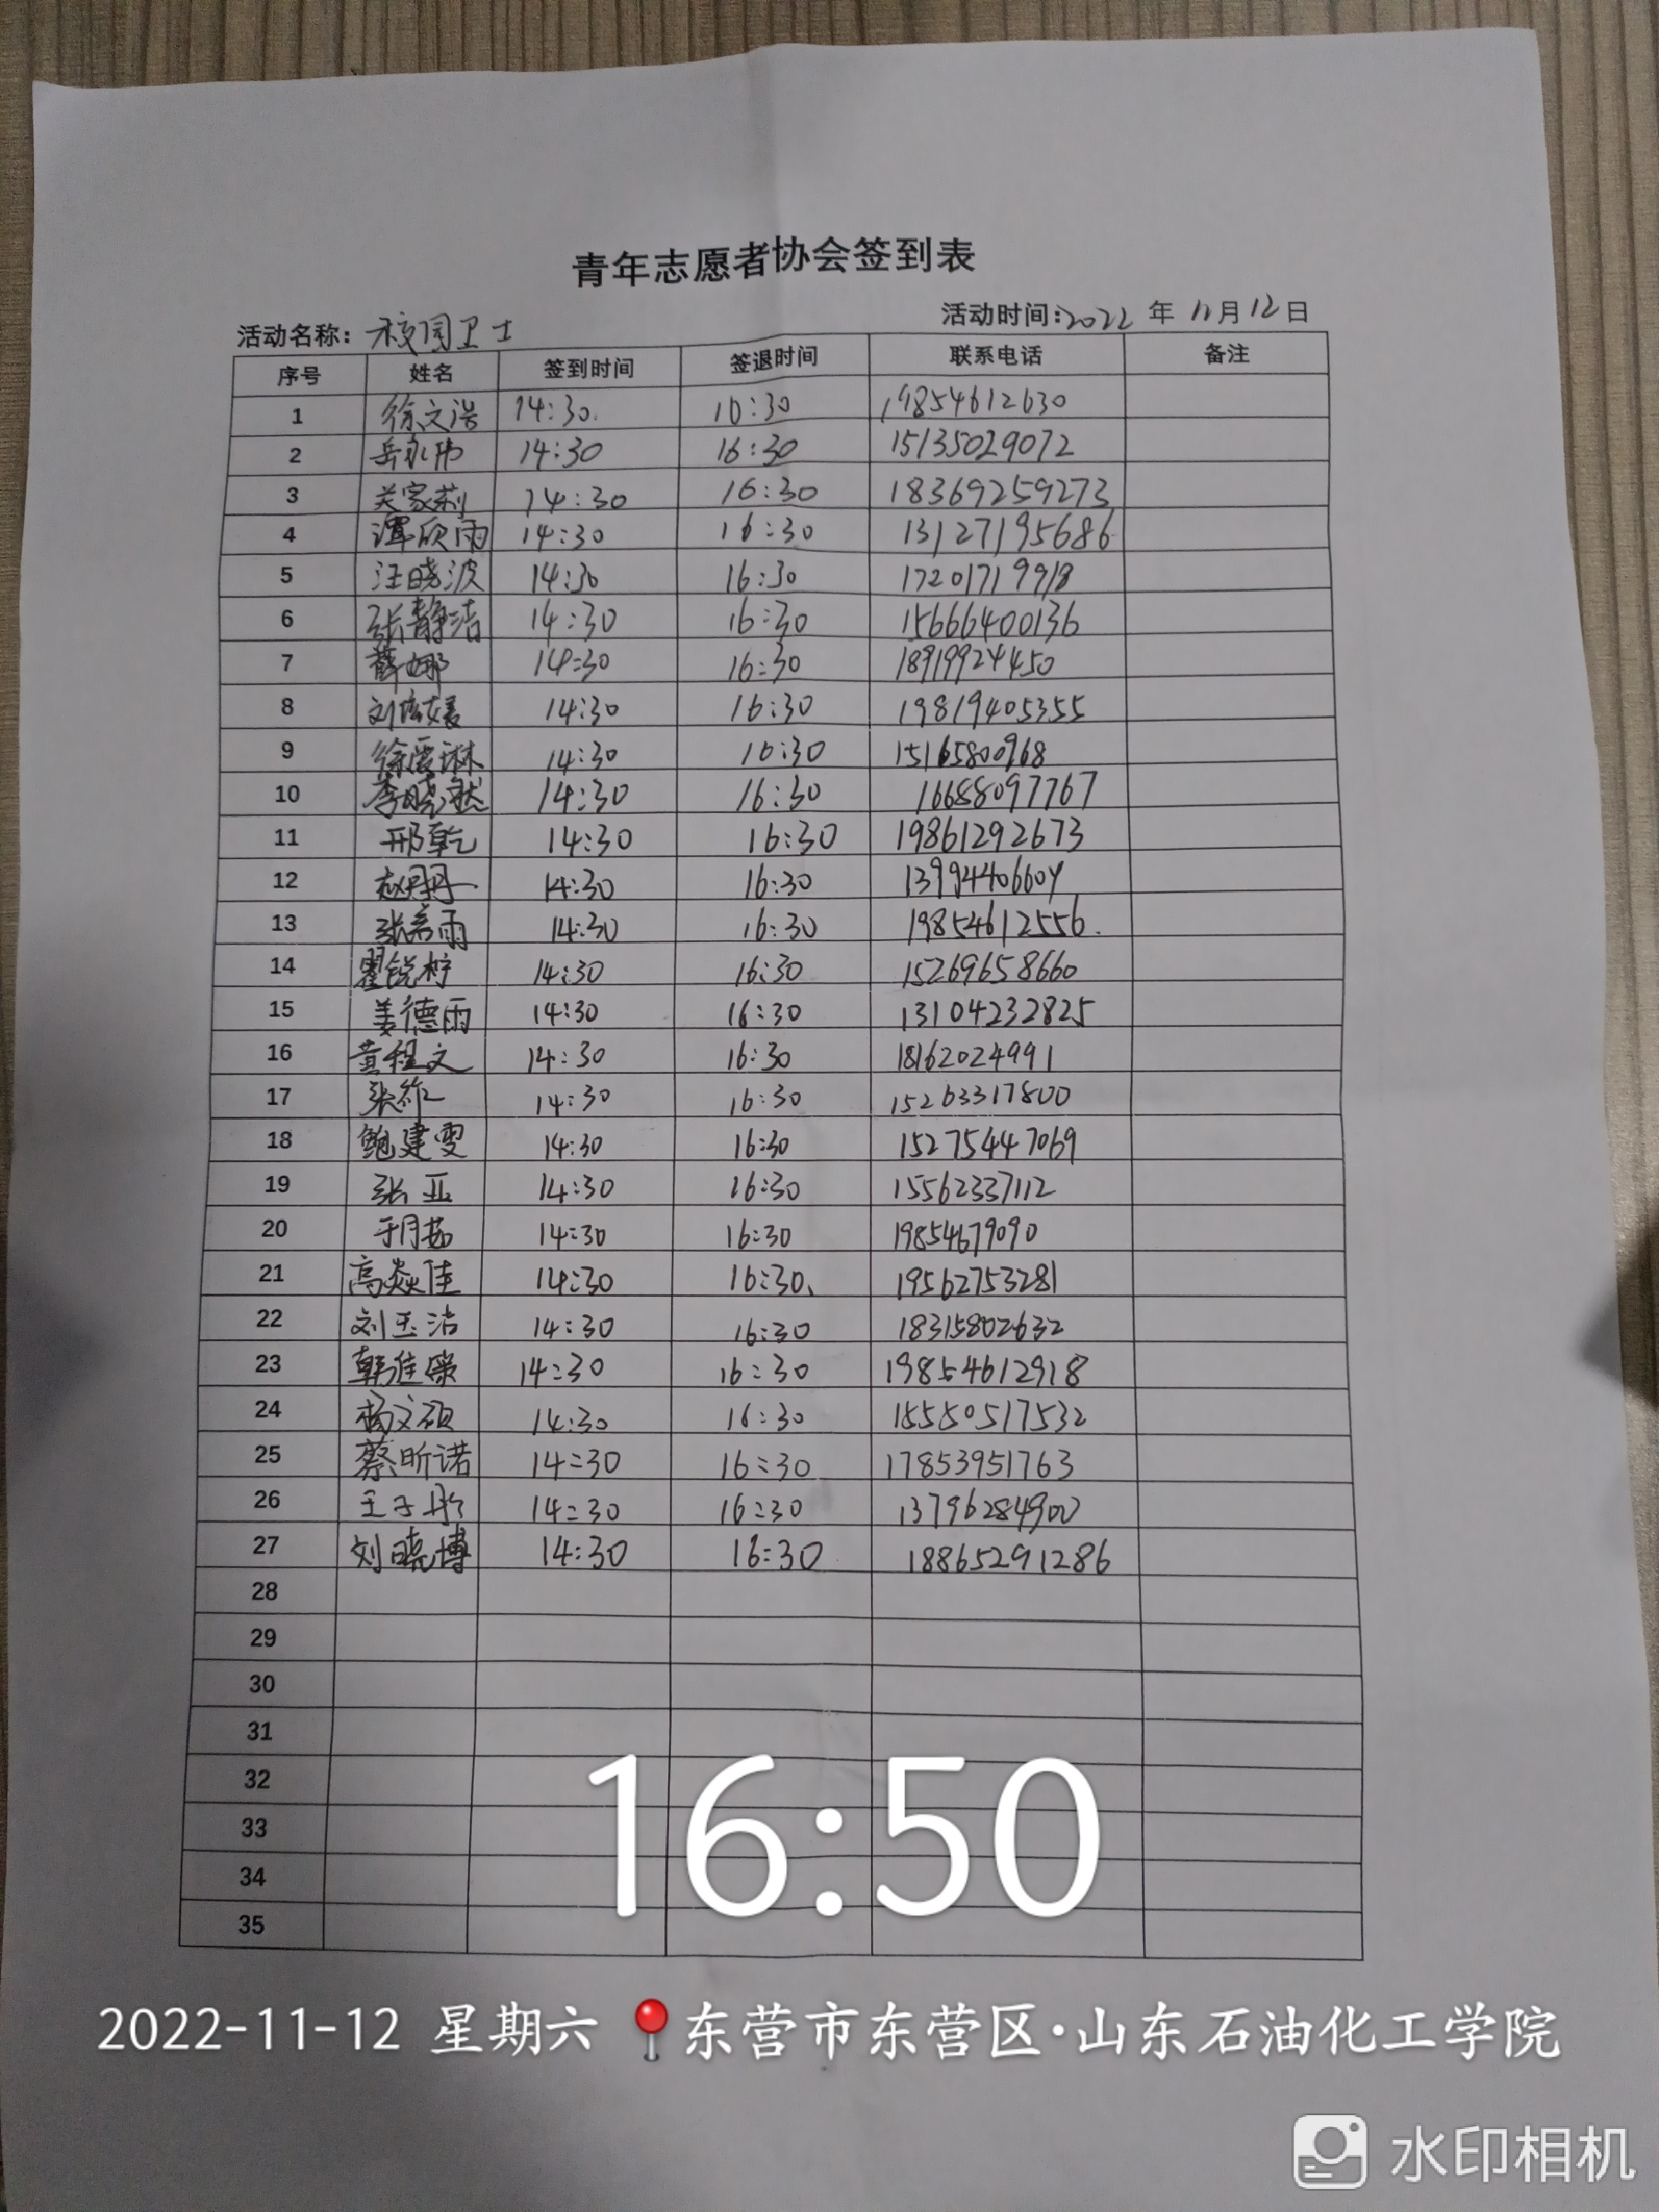 青年志愿者协会签到表
活动名称：校园卫士 活动时间：2022 年 11月 12日
序号 姓名 签到时间 签退时间 联系电话 备注
1 徐文浩 14:30. 16:30 19854612630
2 岳永伟 14:30 16:30 15135029072
3 关家莉 14:30 16:30 18369259273
4 谭欣雨 14:30 16:30 13127195686
5 汪晓波 14:30 16:30 17201719918
6 张静洁 14:30 16:30 15666400136
7 薛娜 14:30 16:30 18919924450
8 刘 14:30 16:30 19819405355
9 徐 琳 14:30 16:30 15165800968
10 李晓然 14:30 16:30 16688097767
11 邢乾 14:30 16:30 19861292673
12 赵丹丹 14:30 16:30 13994406604
13 张希雨 14:30 16:30 19854612556.
14 翟锐柠 14:30 16:30 15269658660
15 姜德雨 14:30 16:30 13104232825
16 黄程文 14:30 16:30 18162024991
17 张 14:30 16:30 15263317800
18 鲍建雯 14:30 16:30 15275447069
19 张亚 14:30 16:30 15562337112
20 于月茹 14:30 16:30 19854679090
21 高焱佳 14:30 16:30、 19562753281
22 刘玉洁 14:30 16:30 18315802632
23 韩佳荣 14:30 16:30 19854612918
24 杨文硕 14:30 16:30 15550517532
25 蔡昕诺 14:30 16:30 17853951763
26 王子彤 14:30 16:30 13796284900
27 刘晓博 14:30 16:30 18865291286
28
29
30
31
32
33
34
35
16:50
2022-11-12 星期六 东营市东营区·山东石油化工学院
水印相机